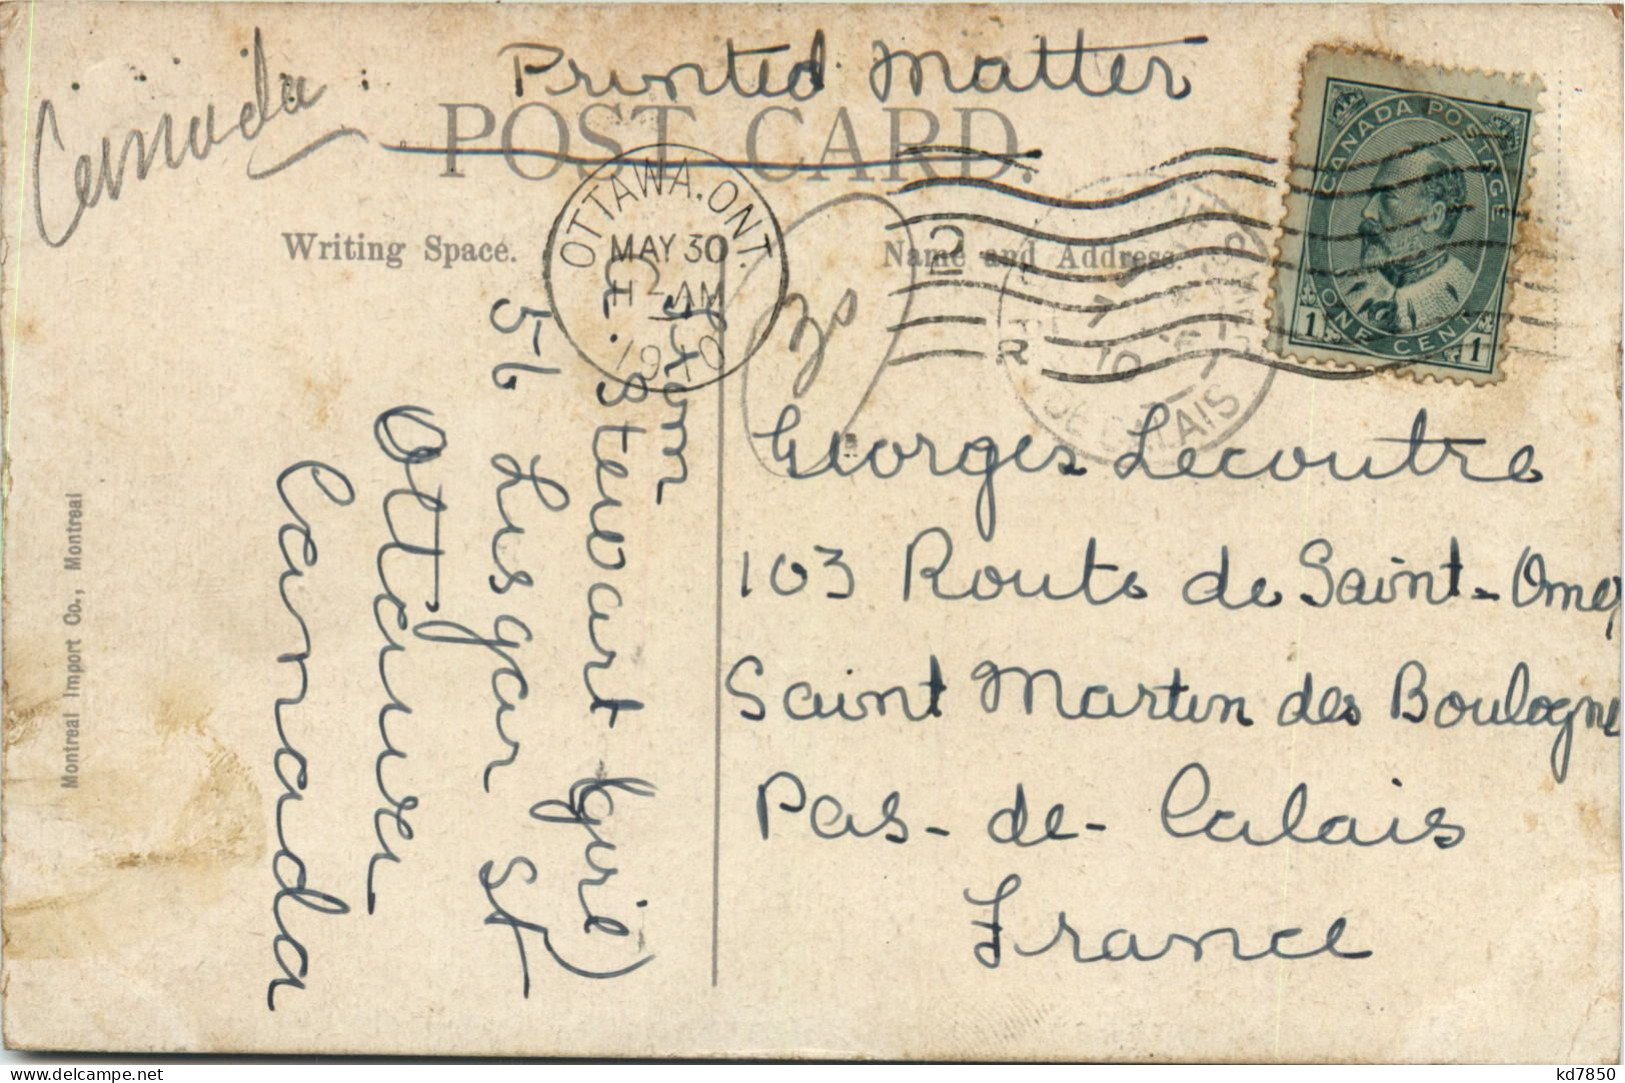 Canada
Printed Matter
POST CARD.
Writing Space.
Name and Address.
OTTAWA. ONT.
MAY 30
11-AM
1910
2
30
CANADA POSTAGE
ONE CENT
1 1
7
10
R
DE CALAIS
from
C. Stewart (girl)
56 Lisgar St
Ottawa
Canada
Georges Lecoutre
103 Route de Saint-Omer
Saint Martin des Boulogne
Pas-de-Calais
France
Montreal Import Co., Montreal
www.delcampe.net
kd7850